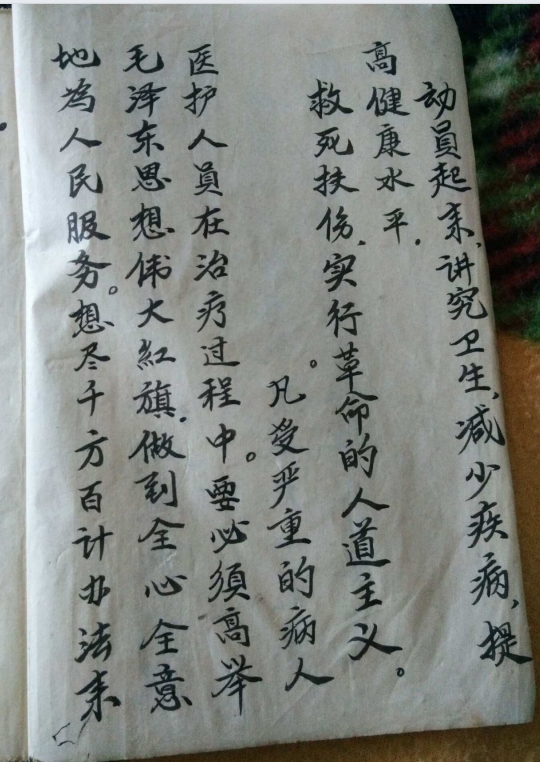 动员起来、讲究卫生、减少疾病、提
高健康水平.
救死扶伤、实行革命的人道主义。
。凡受严重的病人
医护人員在治疗过程中。要必须高举
毛泽东思想伟大紅旗.做到全心全意
地为人民服务。想尽千方百计办法来